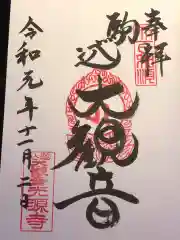 奉拝
駒込
大観音
令和元年十一月二日
光源寺